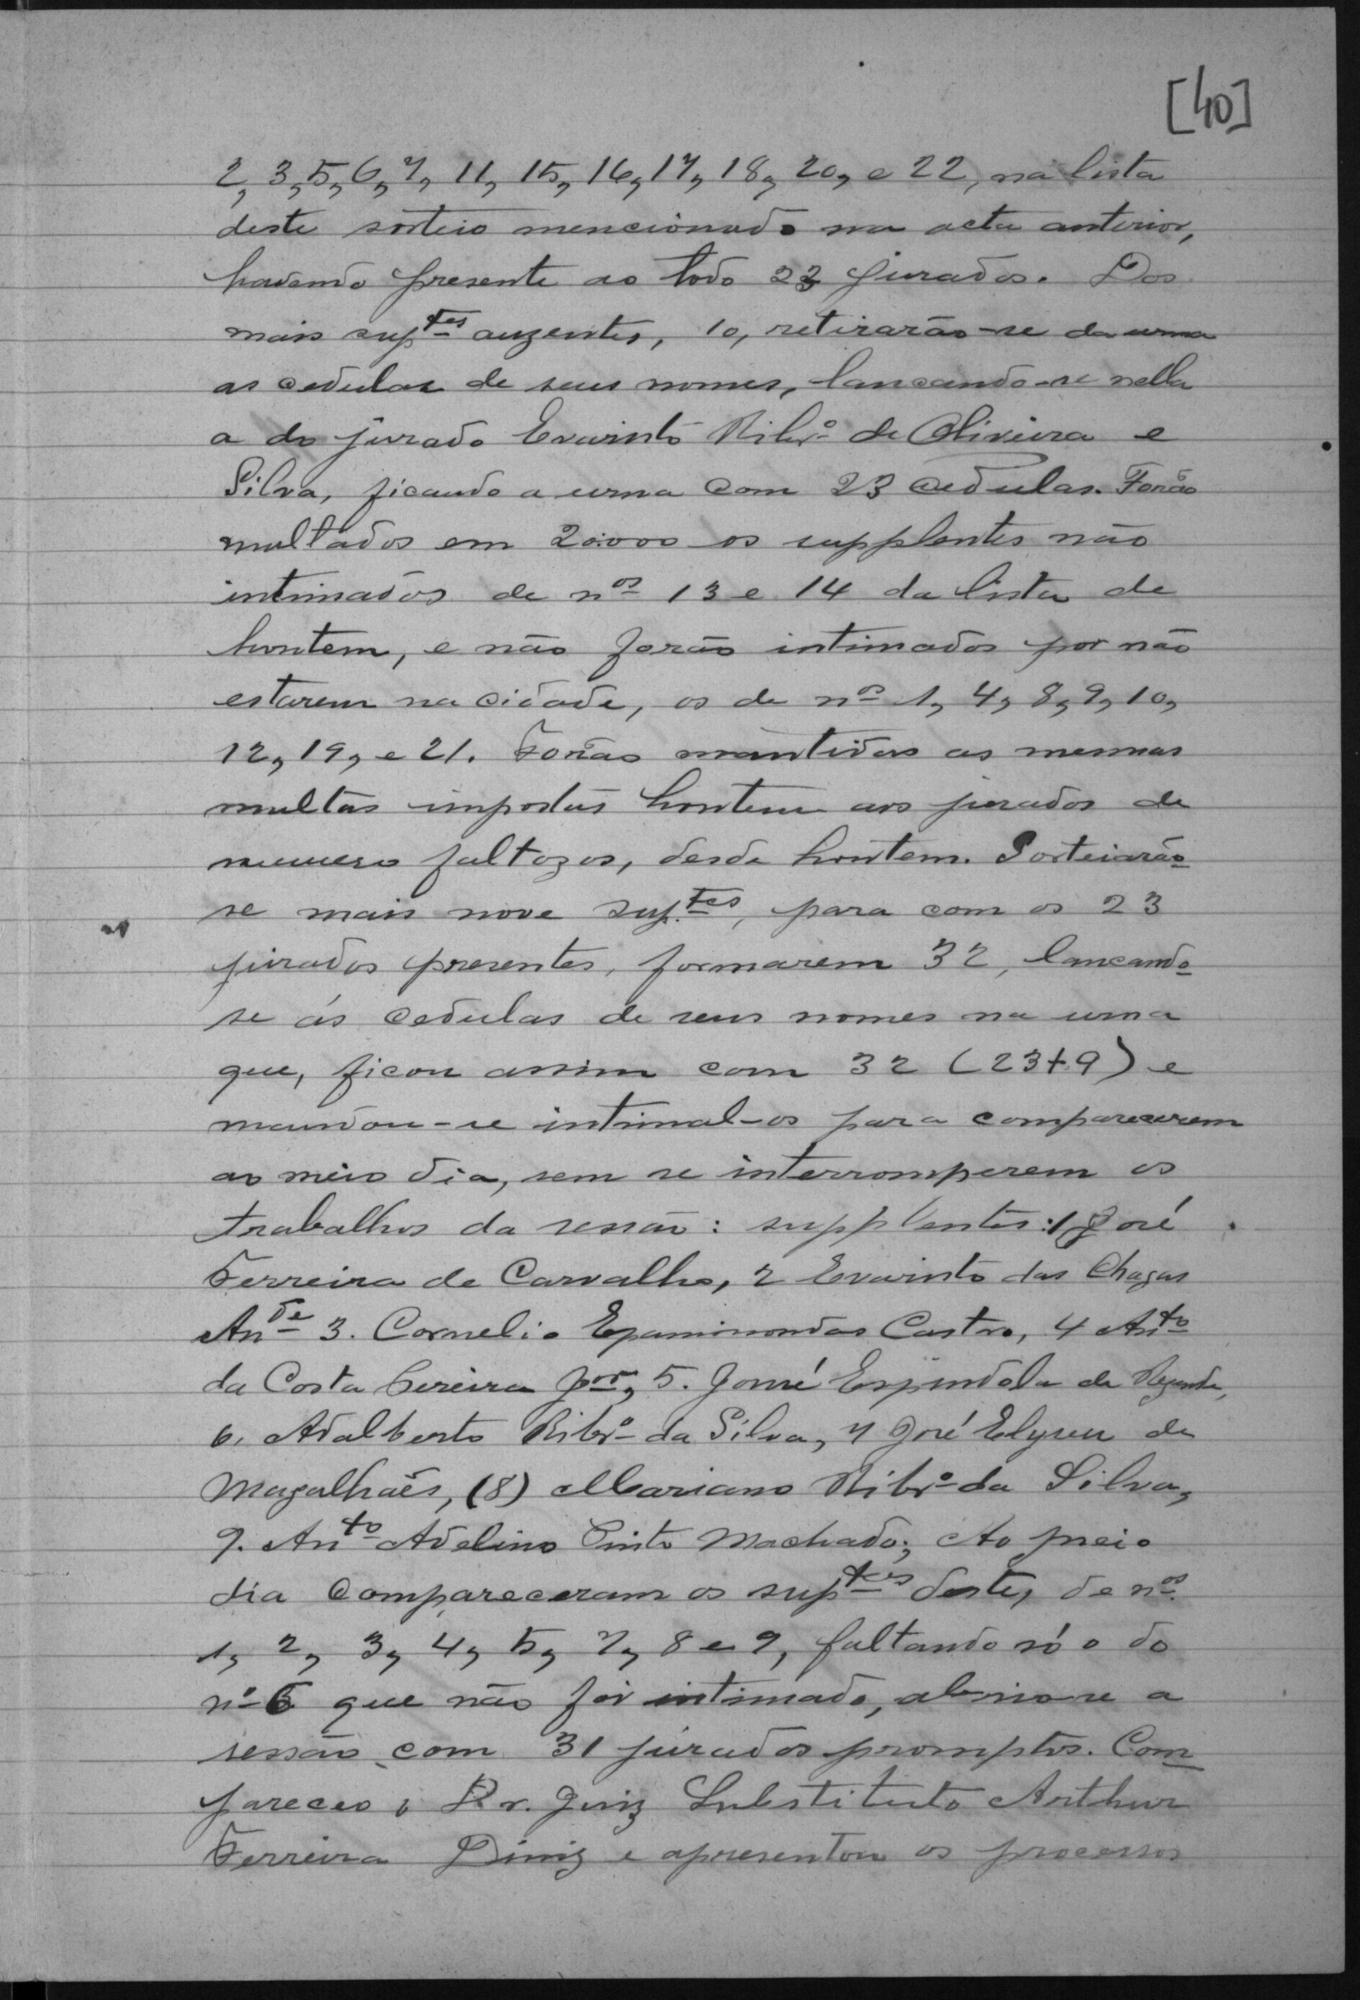 [40]
2, 3, 5, 6, 7, 11, 15, 16, 17, 18, 20, e 22, na lista
deste sorteio mencionado na acta anterior,
havendo presente ao todo 23 jurados. Dos
mais sup.tes auzentes, 10, retirarão-se da urna
as cedulas de seus nomes, lancando-se nella
a do jurado Evaristo Ribr.o de Oliveira e
Silva, ficando a urna com 23 cedulas. Forão
multados em 20:000 os supplentes não
intimados de n.os 13 e 14 da lista de
hontem, e não forão intimados por não
estarem na cidade, os de n.os 1, 4, 8, 9, 10,
12, 19, e 21. Forão mantidas as mesmas
multas impostas hontem aos jurados de
numero faltozos, desde hontem. Sorteiarão-
se mais nove sup.tes, para com os 23
jurados presentes, formarem 32, lancando-
se ás cedulas de seus nomes na urna
que, ficou assim com 32 (23+9) e
mandou-se intimal-os para comparecerem
ao meio dia, sem se interromperem os
trabalhos da sessão: supplentes: 1 José
Ferreira de Carvalho, 2 Evaristo das Chagas
And.e 3. Cornelio Epaminondas Castro, 4 Ant.o
da Costa Pereira J.or, 5. José Espindola de Rezende,
6. Adalberto Ribr.o da Silva, 7 José Elyseu de
Magalhães, (8) Mariano Ribr.o da Silva,
9. Ant.o Adelino Pinto Machado; Ao meio
dia compareceram os sup.tes deste, de n.os
1, 2, 3, 4, 5, 7, 8 e 9, faltando só o do
n.o 6 que não foi intimado, abrio-se a
sessão com 31 jurados promptos. Com-
pareceo o Dr. Juiz Substituto Arthur
Ferreira Diniz e apresentou os processos